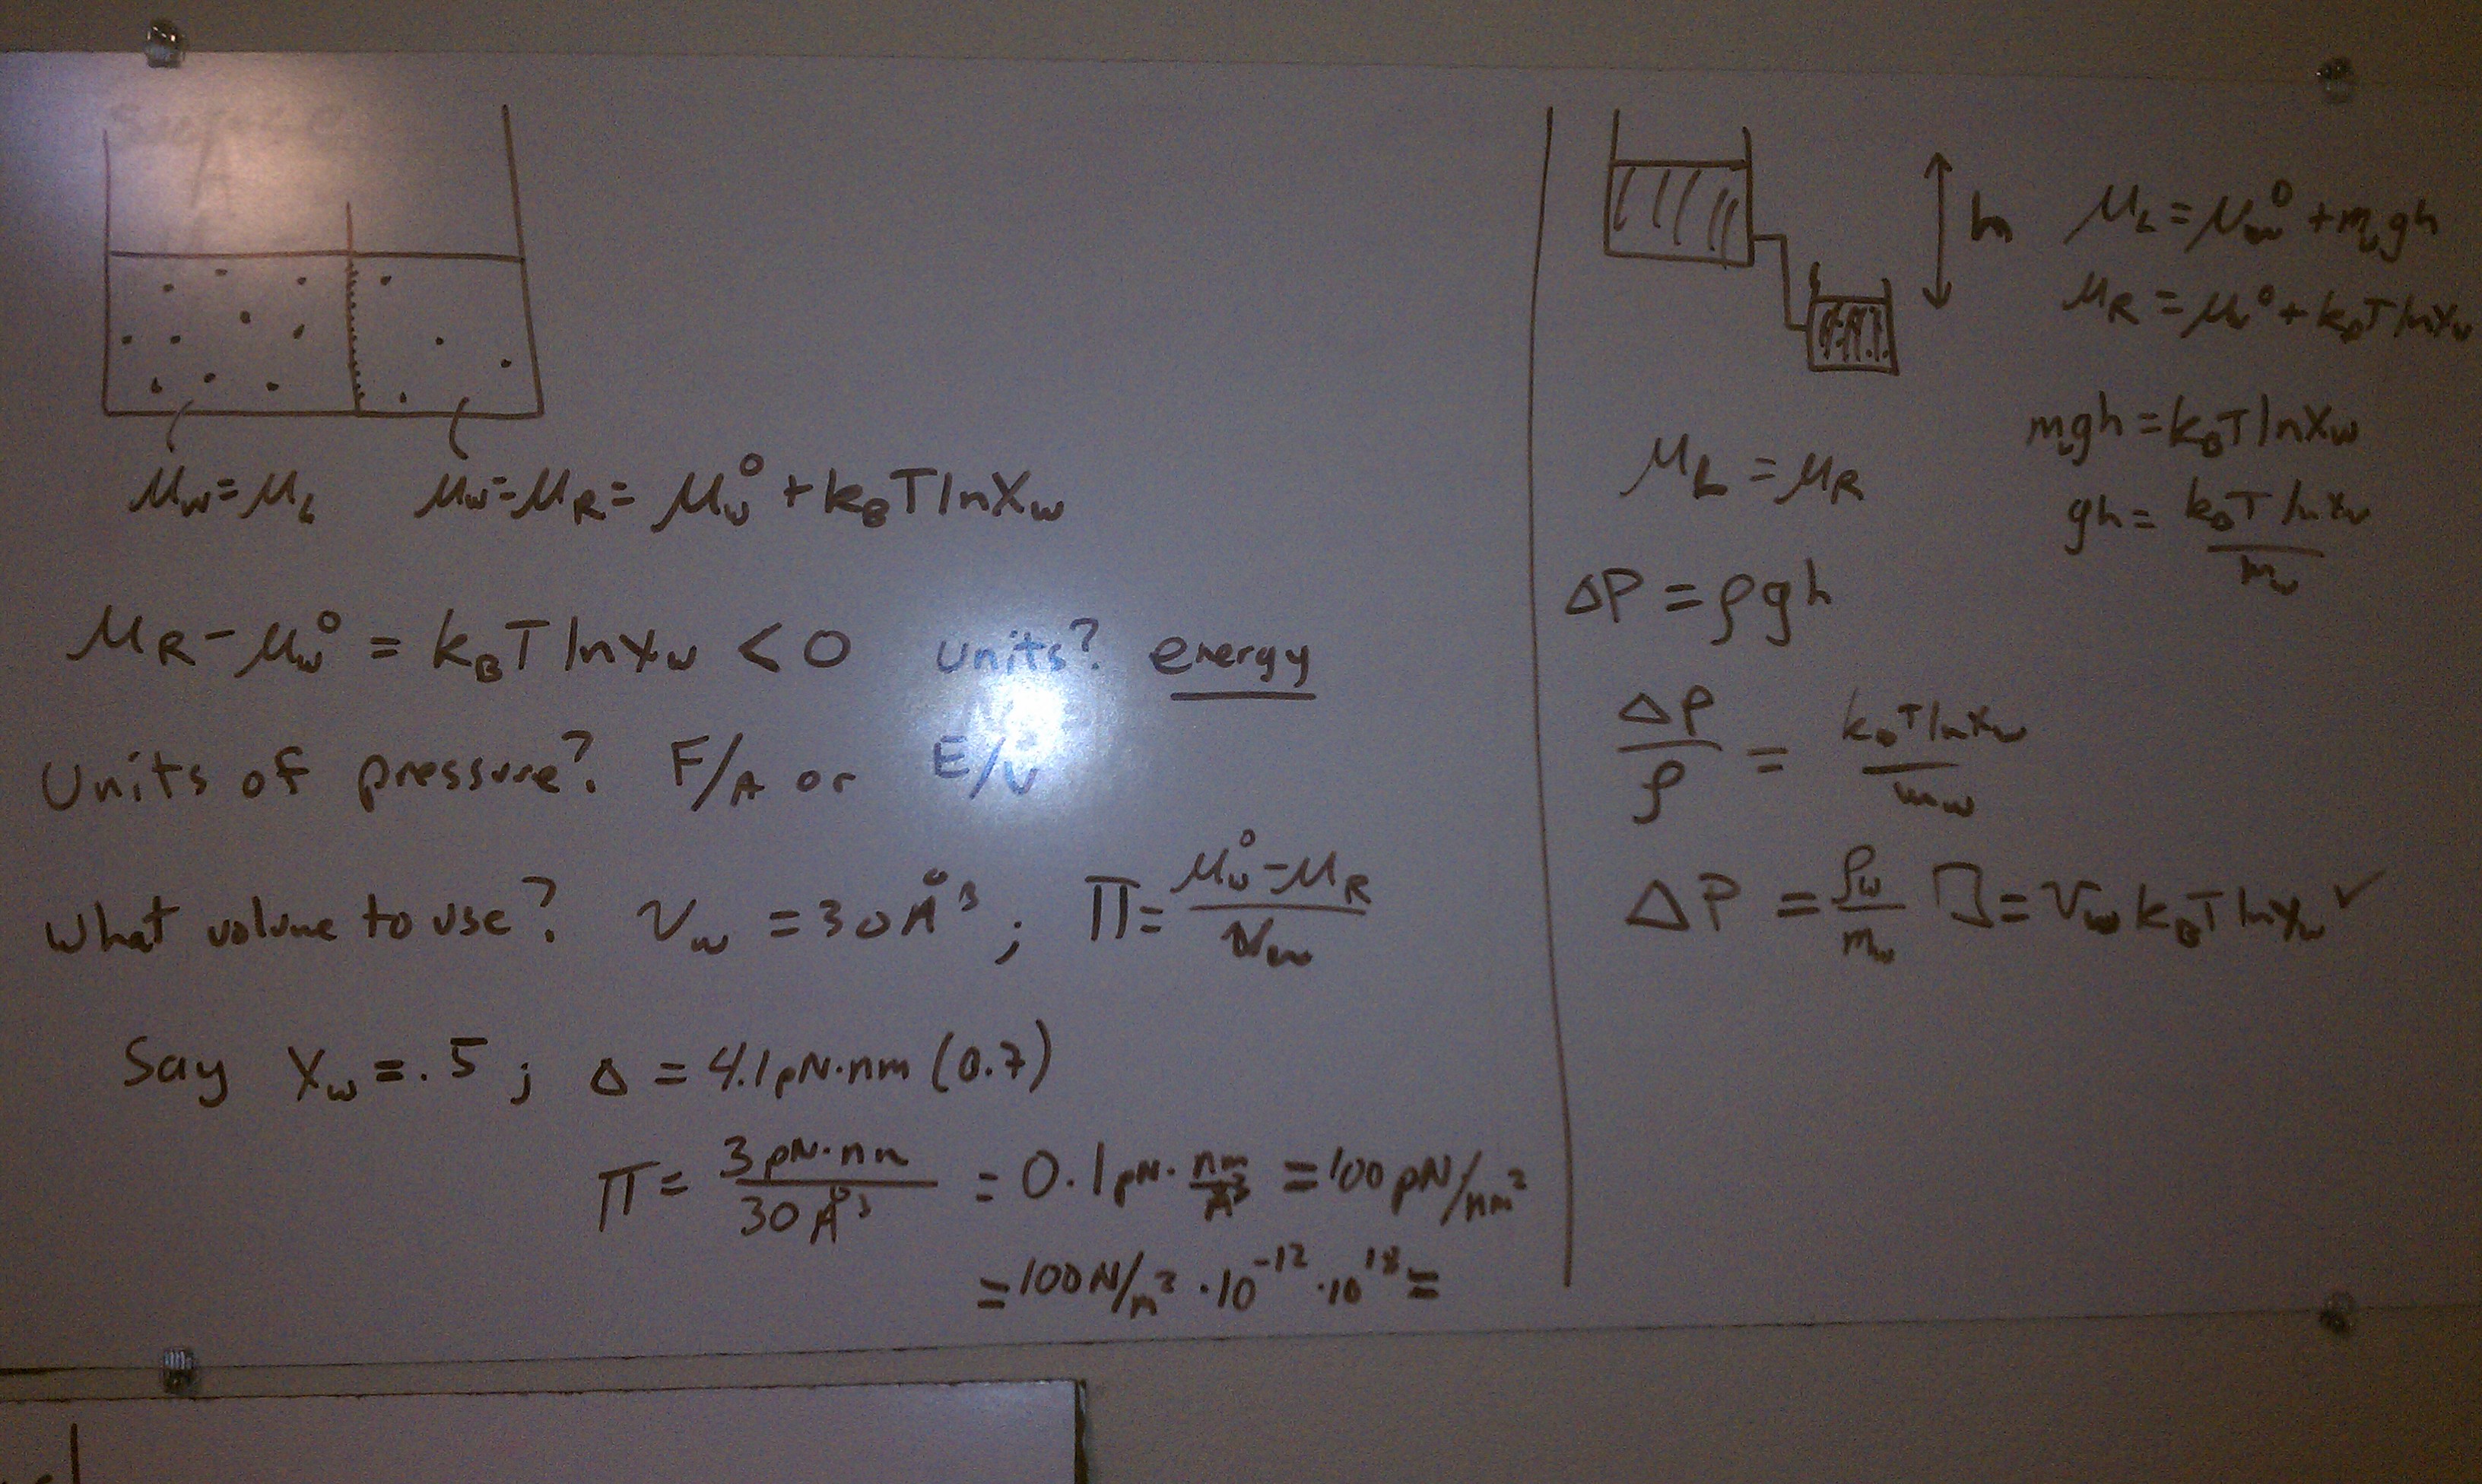 μ_w = μ_L    μ_w = μ_R = μ_w^0 + k_B T ln X_w
μ_R - μ_w^0 = k_B T ln X_w < 0    units?  energy
Units of pressure?  F/A or E/V
What volume to use?  V_w = 30 Å^3 ;  Π = (μ_w^0 - μ_R)/V_w
Say X_w = .5 ;  Δ = 4.1 pN·nm (0.7)
Π = 3 pN·nm / 30 Å^3 = 0.1 pN· nm/Å^3 = 100 pN/nm^2
= 100 N/m^2 · 10^-12 · 10^18 =
h
μ_L = μ_w^0 + m_w gh
μ_R = μ_w^0 + k_B T ln X_w
m_w gh = k_B T ln X_w
μ_L = μ_R
gh = k_B T ln X_w / m_w
ΔP = ρgh
ΔP/ρ = k_B T ln X_w / m_w
ΔP = ρ_w/m_w [] = V_w k_B T ln X_w ✓